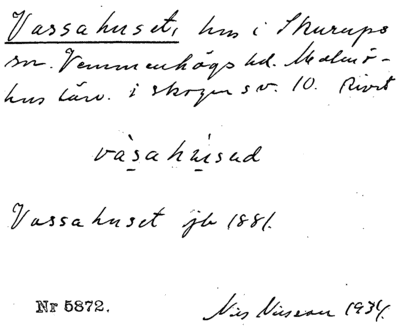 Vassahuset, hus i Skurups
sn. Vemmenhögs hd. Malmö-
hus län. i skogen s v. 10. Rivet
vàsahúsəd
Vassahuset jb 1881.
Nr 5872.
Nils Nilsson 1934.